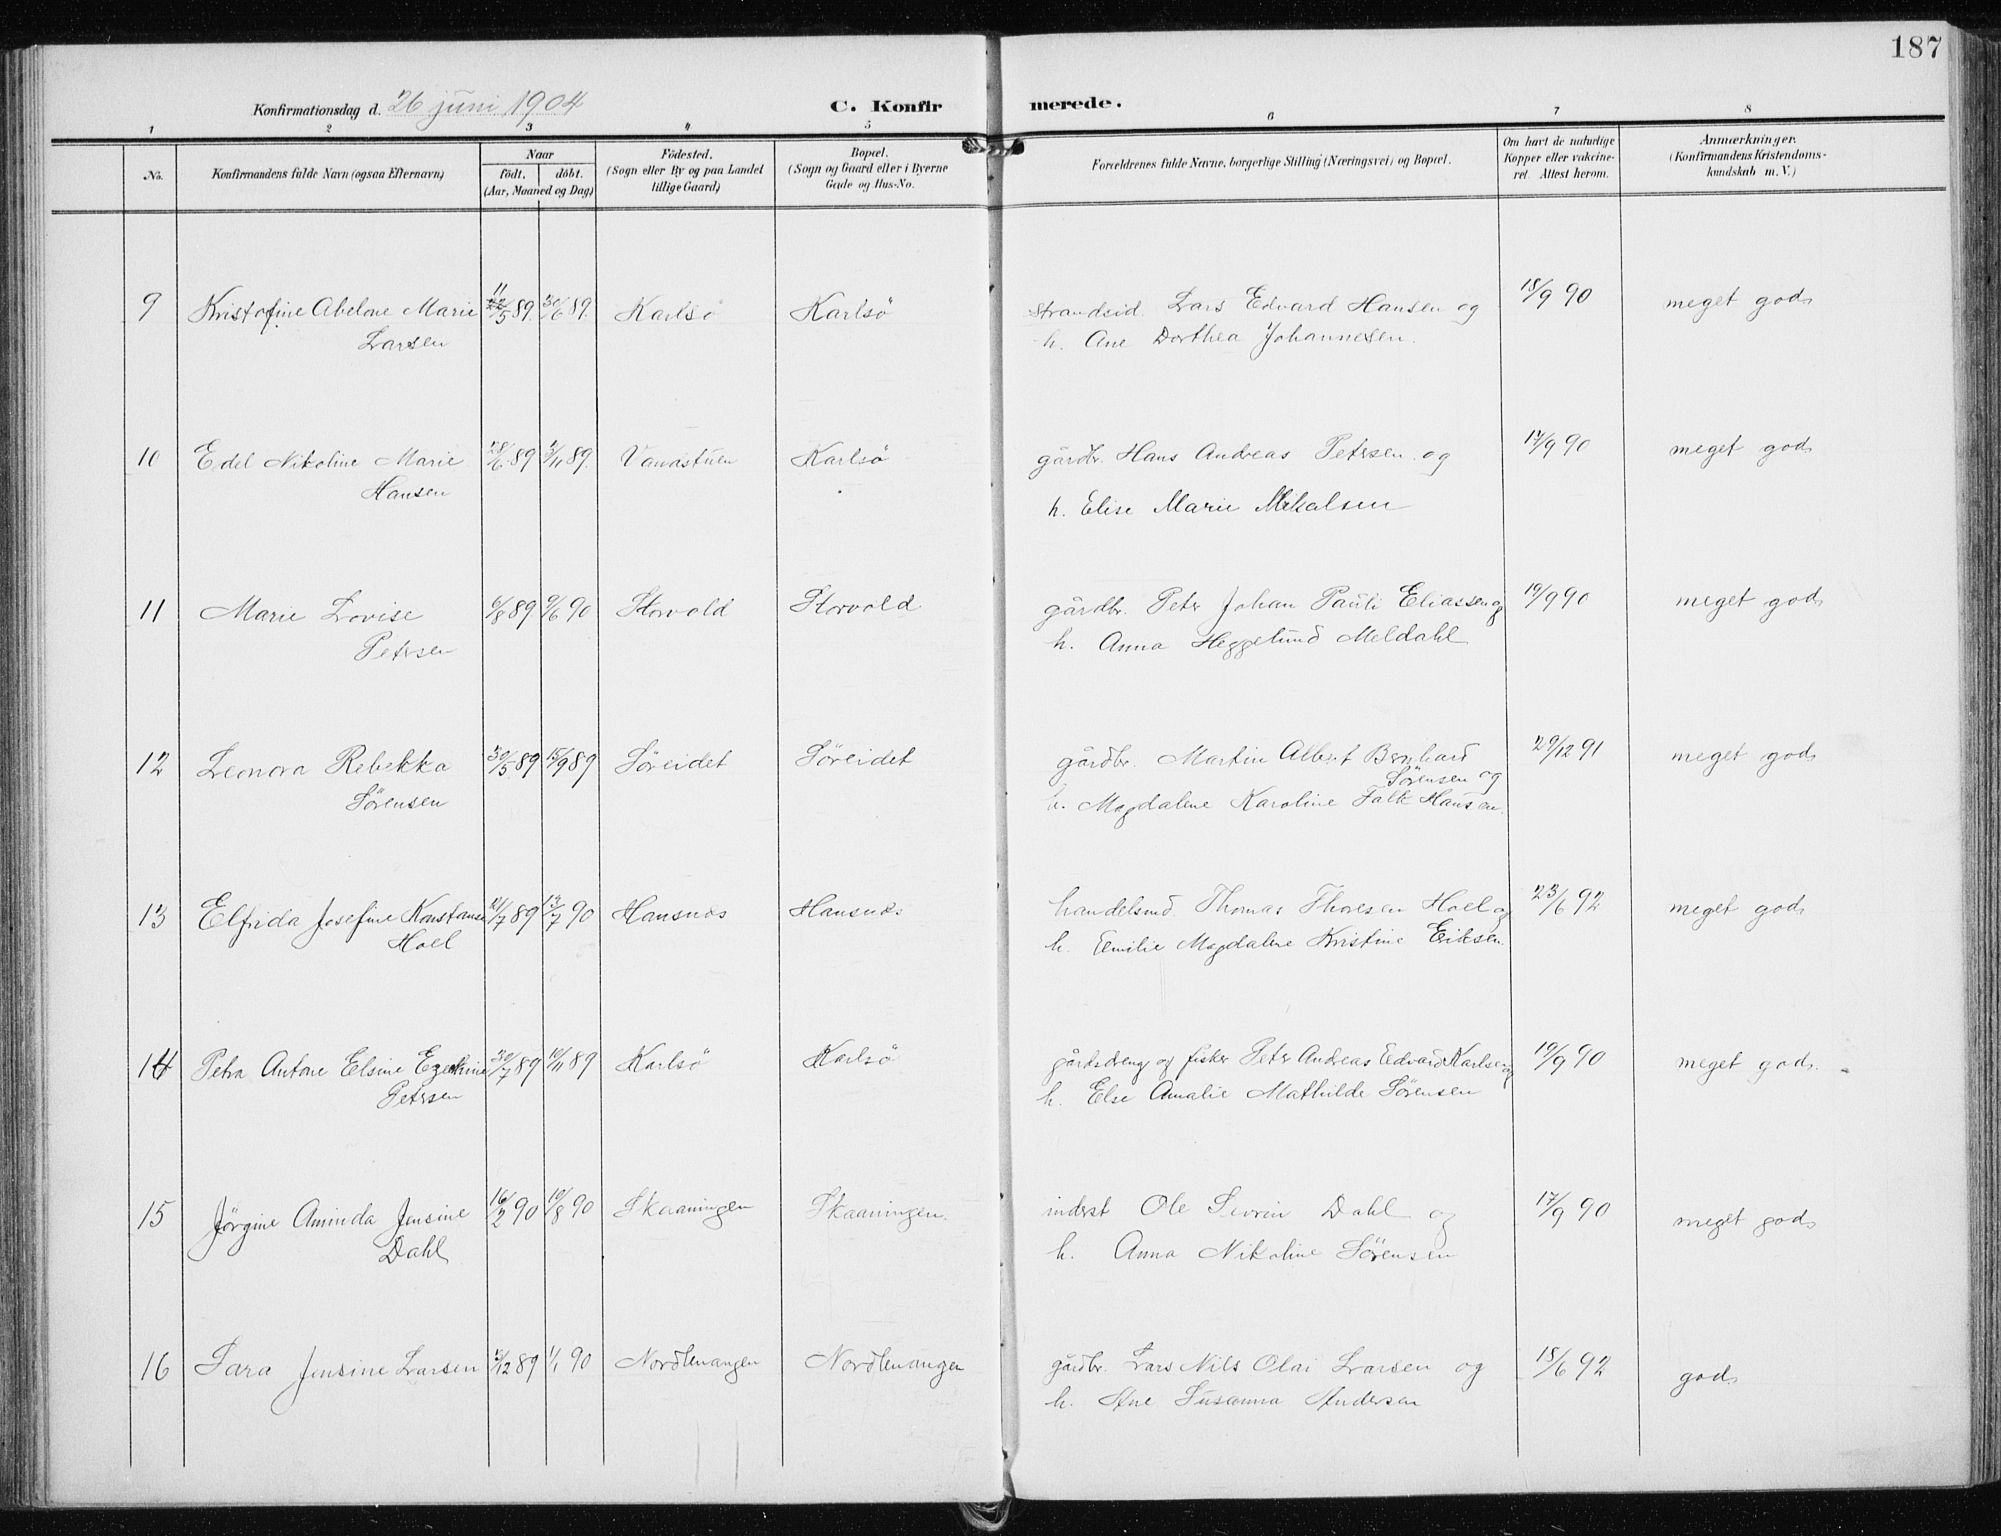 187
Konfirmationsdag d. 26 juni 1904 C. Konfirmerede.
1 2 3 4 5 6 7 8
No. Konfirmandens fulde Navn (ogsaa Efternavn) Naar født. døbt. (Aar, Maaned og Dag) Fødested. (Sogn eller By og paa Landet tillige Gaard) Bopæl. (Sogn og Gaard eller i Byerne Gade og Hus-No. Forældrenes fulde Navne, borgerlige Stilling (Næringsvei) og Bopæl. Om havt de naturlige Kopper eller vakcineret. Attest herom. Anmærkninger. (Konfirmandens Kristendomskundskab m. V.)
9 Kristofine Abelone Marie 11/5 89. 30/6 89. Karlsö Karlsö strandsid. Lars Edvard Hansen og 18/9 90 meget god
Larsen h. Ane Dorthea Johannesen.
10 Edel Nikoline Marie 89 89. Vandstuen Karlsö gårdbr. Hans Andreas Petersen og 17/9 90 meget god
Hansen h. Elise Marie Mikalsen
11 Marie Lovise 6/8 89 9/6 90 Storvold Storvold gårdbr. Peter Johan Pauli Eliassen og 19/9 90 meget god
Petersen h. Anna Heggelund Meldahl
12 Leonora Rebekka 30/5 89 15/9 89 Söreidet Söreidet gårdbr. Martin Albert Bernhard 29/12 91 meget god
Sörensen Sörensen og
h. Magdalene Karoline Falk Hansen.
13 Elfrida Josefine Konstanse 21/7 89 13/7 90 Hansnes Hansnes handelsmd. Thomas Thoresen Hoel og 23/6 92 meget god
Hoel h. Emilie Magdalene Kristine Eriksen.
14 Petra Antone Elsine Ezekine 30/7 89 10/11 89 Karlsö Karlsö gårdsdreng og fisker Peter Andreas Edvard Karlsen og 19/9 90 meget god.
Petersen h. Else Amalie Mathilde Sörensen
15 Jörgine Aminda Jensine 16/2 90 10/8 90 Skaaningen Skaaningen. inderst Ole Sevrin Dahl og 17/9 90 meget god
Dahl h. Anna Nikoline Sörensen
16 Sara Jensine Larsen 89 1/1 90 Nordlenangen Nordlenangen gårdbr. Lars Nils Olai Larsen og 18/6 92 god
h. Ane Susanna Andersen